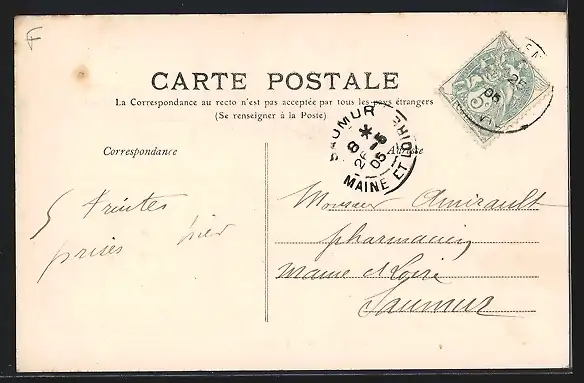 F
CARTE POSTALE
La Correspondance au recto n'est pas acceptée par tous les pays étrangers
(Se renseigner à la Poste)
Correspondance
Adresse
SAUMUR
MAINE ET LOIRE
8 *
26
05
26
05
5
prises hier
Monsieur Amirault
pharmacien
Maine et Loire
Saumur